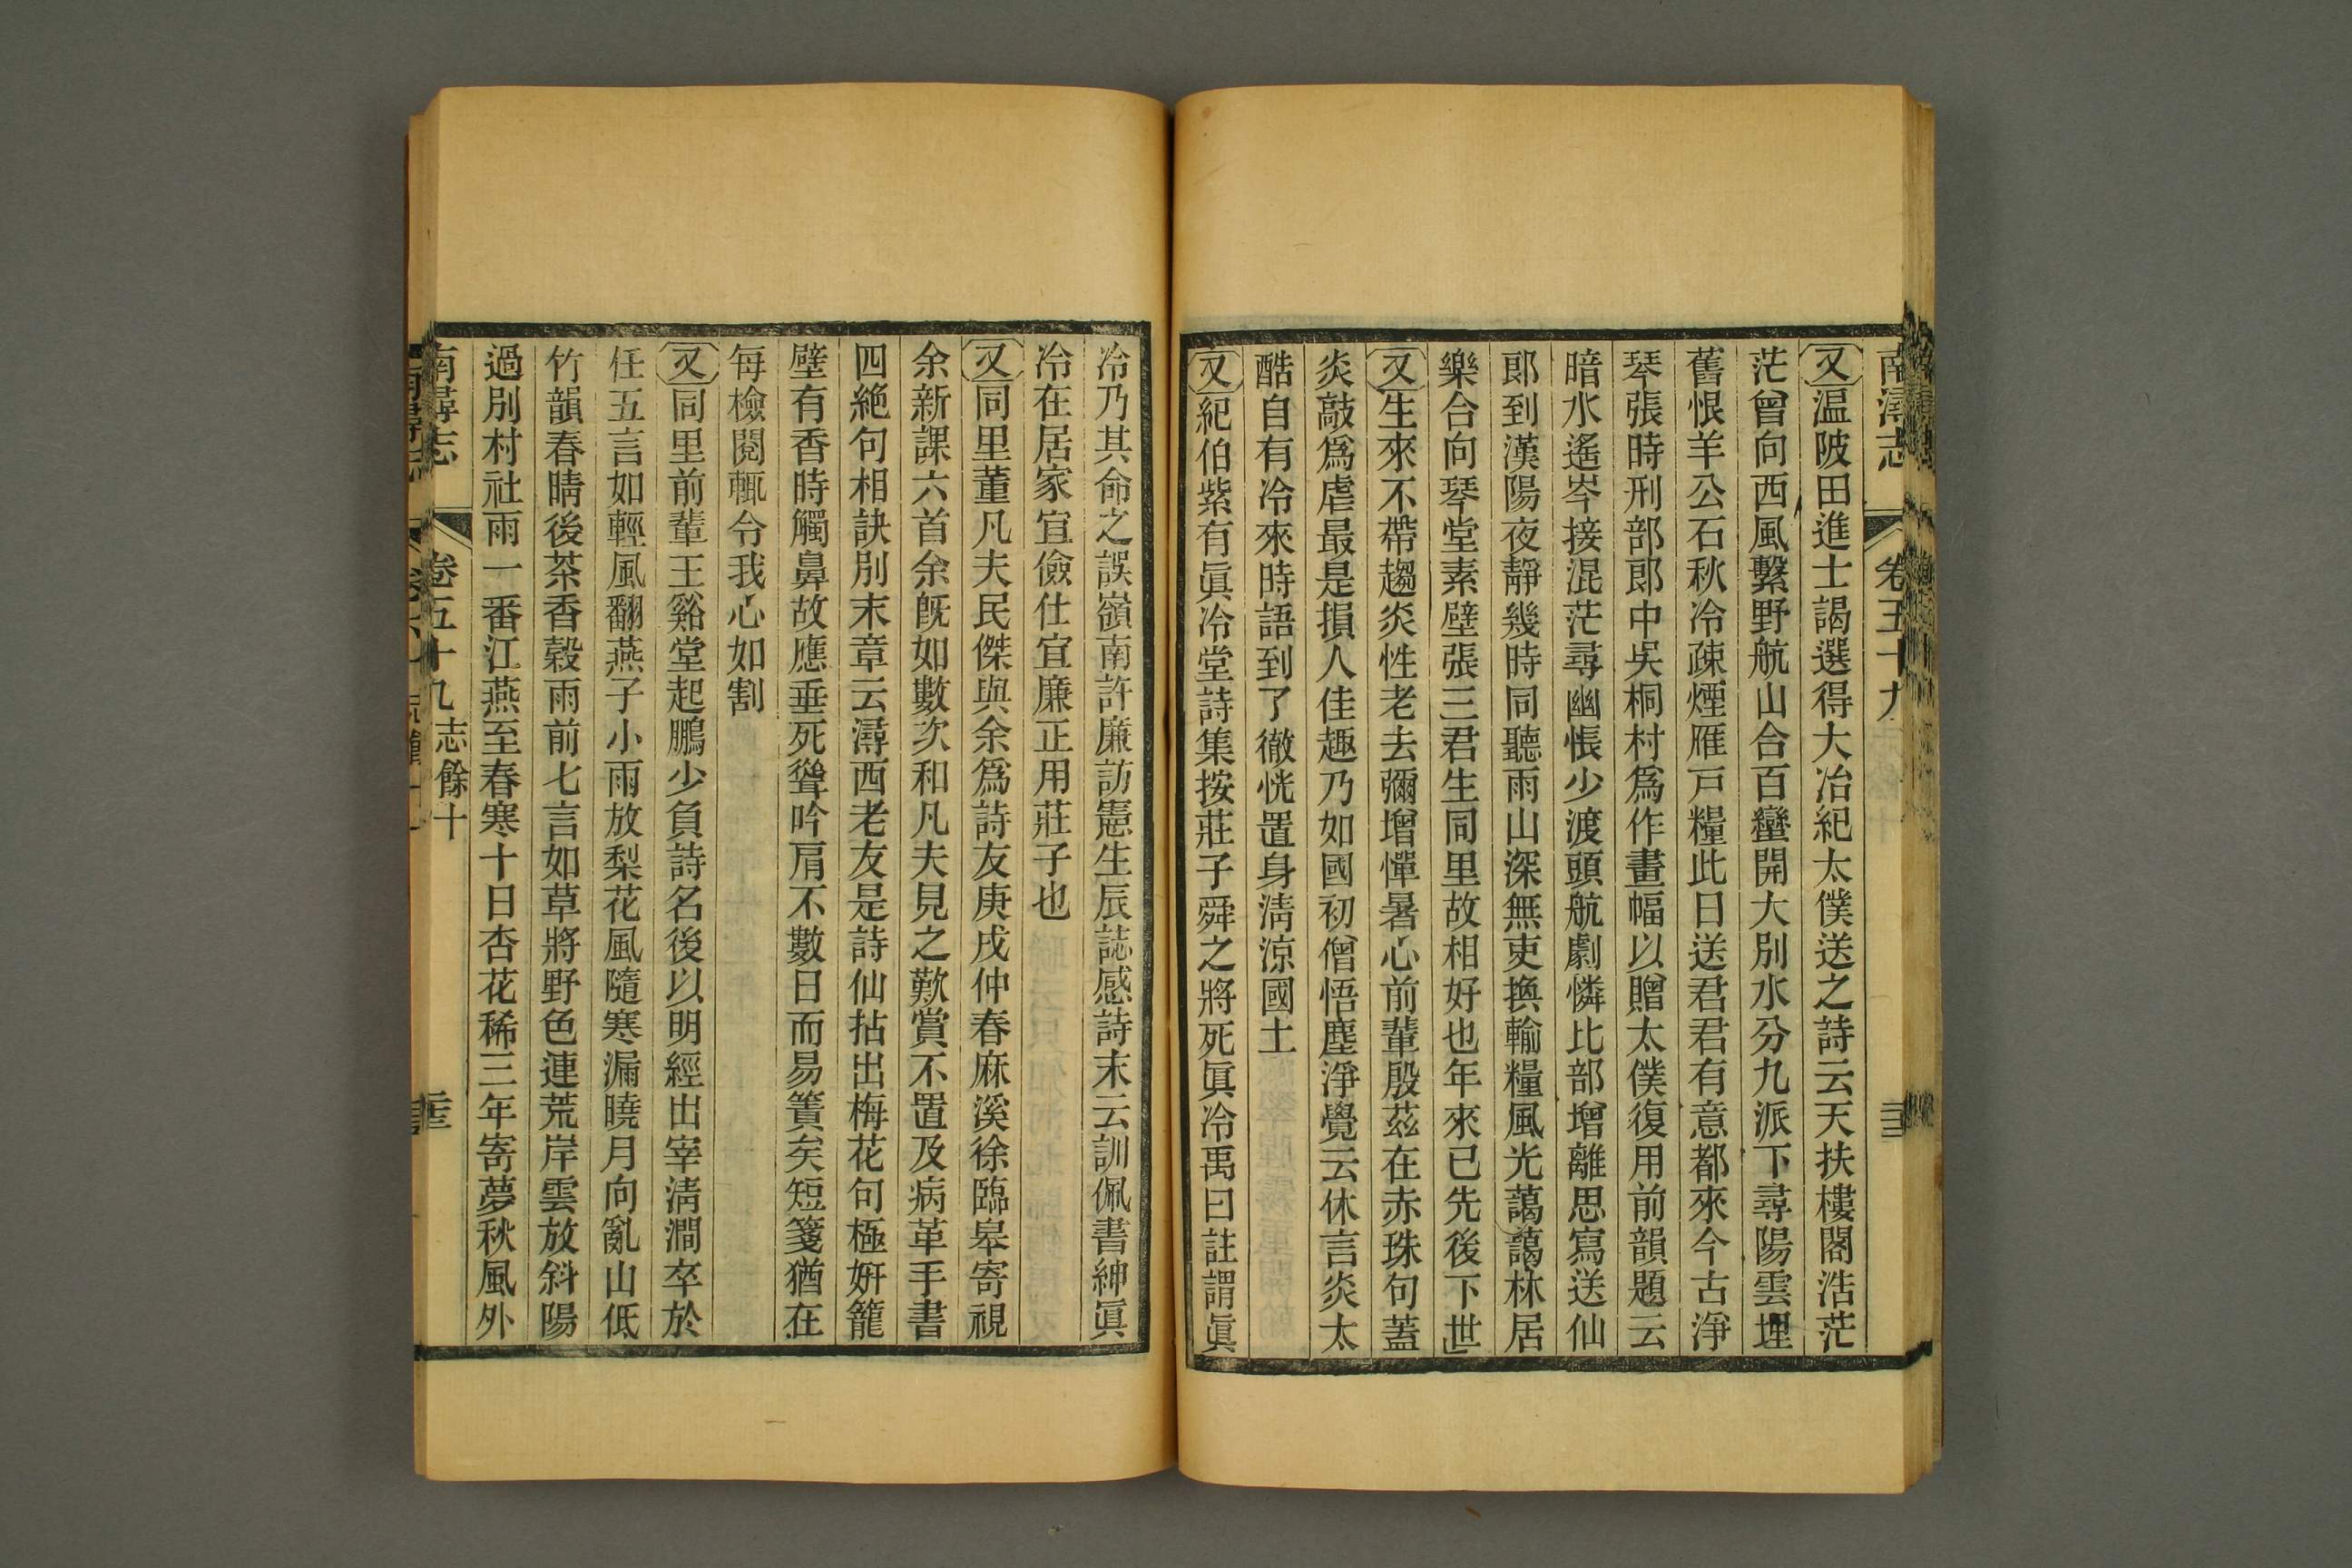 南潯志 卷五十九
又溫陂田進士謁選得大冶紀太僕送之詩云天扶樓閣浩茫
茫曾向西風繫野航山合百蠻開大別水分九派下尋陽雲埋
舊恨羊公石秋冷疎煙雁戸糧此日送君君有意都來今古淨
琴張時刑部郎中吳桐村爲作畫幅以贈太僕復用前韻題云
暗水遙岑接混茫尋幽悵少渡頭航劇憐比部增離思寫送仙
郞到漢陽夜靜幾時同聽雨山深無吏換輸糧風光藹藹林居
樂合向琴堂素壁張三君生同里故相好也年來已先後下世
又生來不帶趨炎性老去彌增憚暑心前輩殷茲在赤珠句蓋
炎敲爲虐最是損人佳趣乃如國初僧悟塵淨覺云休言炎太
酷自有冷來時語到了徹恍置身淸涼國土
又紀伯紫有眞冷堂詩集按莊子舜之將死眞冷禹曰註謂眞
冷乃其命之誤嶺南許廉訪憲生辰誌感詩末云訓佩書紳眞
冷在居家宜儉仕宜廉正用莊子也
又同里董凡夫民傑與余爲詩友庚戌仲春麻溪徐臨皋寄視
余新課六首余旣如數次和凡夫見之歎賞不置及病革手書
四絶句相訣別末章云潯西老友是詩仙拈出梅花句極姸籠
壁有香時觸鼻故應垂死聳吟肩不數日而易簀矣短箋猶在
每檢閱輒令我心如割
又同里前輩王谿堂起鵬少負詩名後以明經出宰淸澗卒於
任五言如輕風翻燕子小雨放梨花風隨寒漏曉月向亂山低
竹韻春晴後茶香穀雨前七言如草將野色連荒岸雲放斜陽
過別村社雨一番江燕至春寒十日杏花稀三年寄夢秋風外
南潯志 卷五十九志餘十